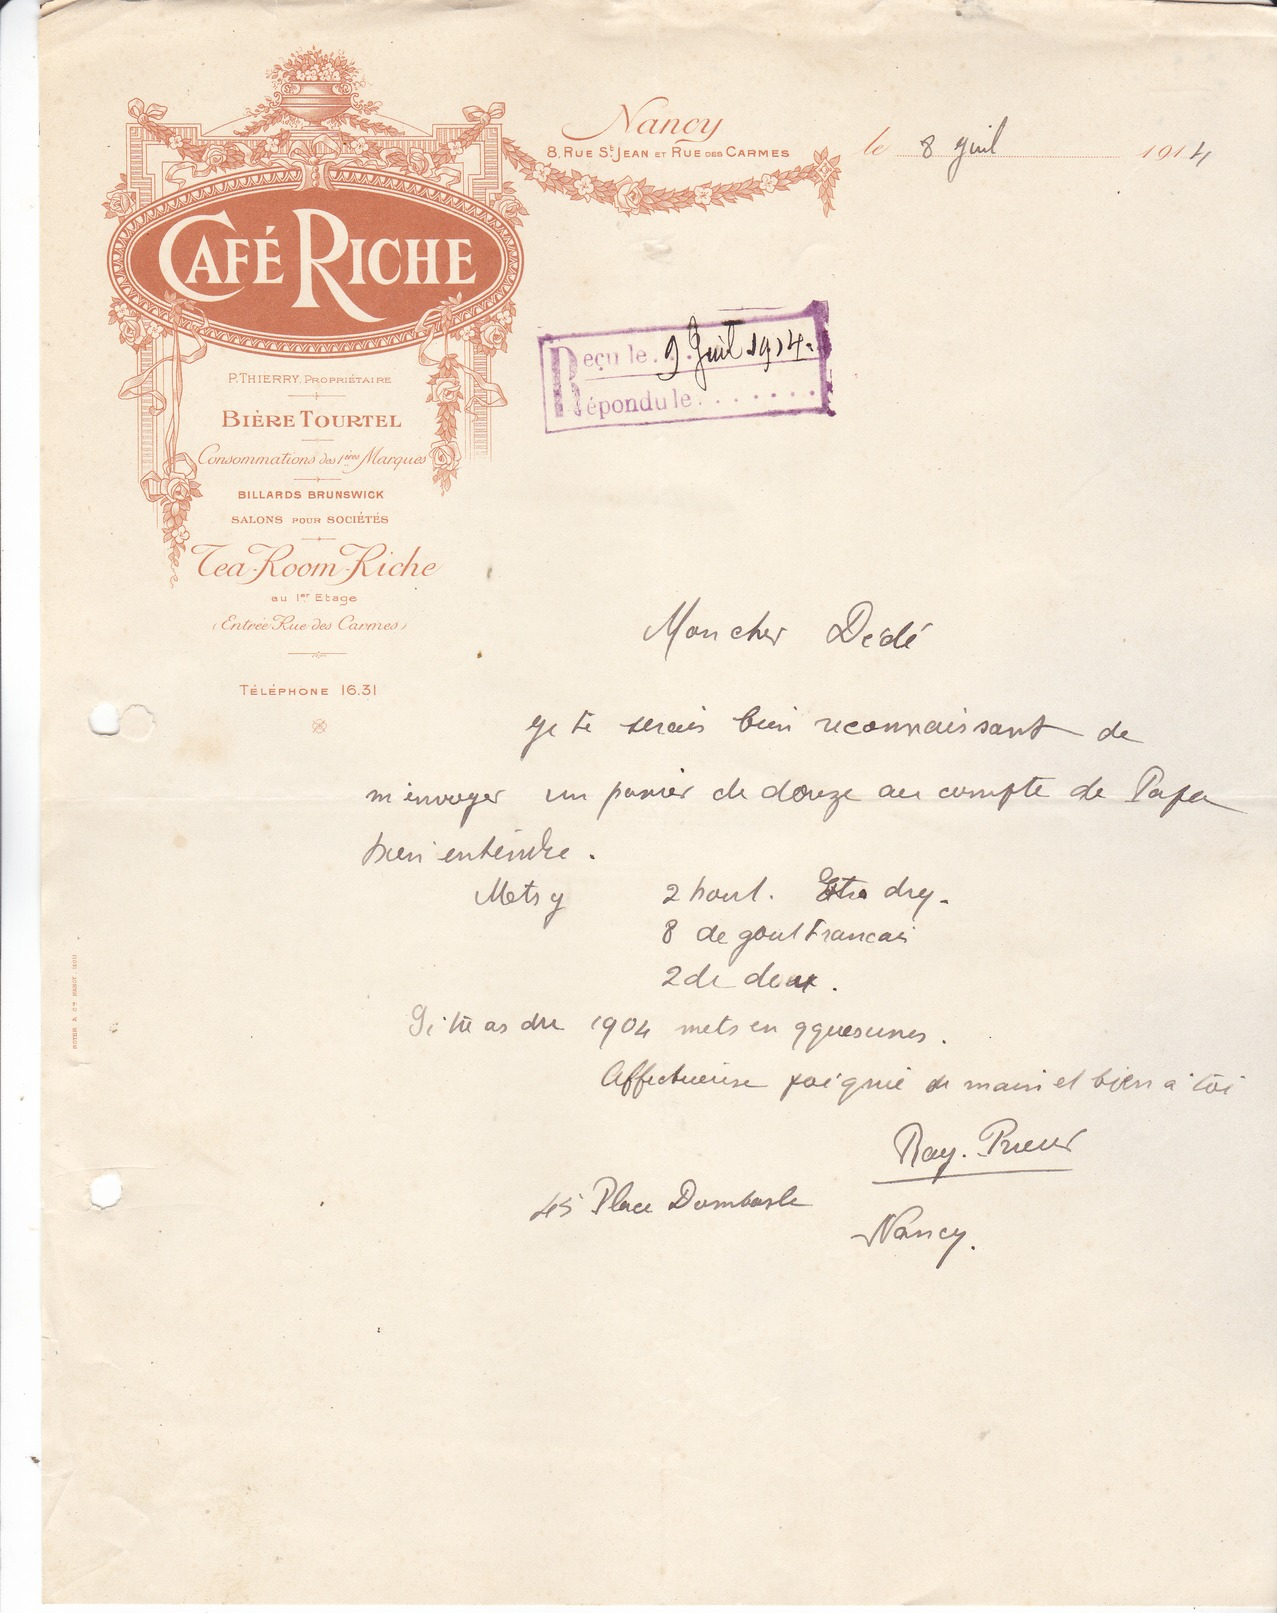 Nancy
8, RUE St JEAN ET RUE DES CARMES
le 8 Juil 1914
CAFÉ RICHE
Reçu le 9 Juil 1914.
Répondu le
P. THIERRY, PROPRIÉTAIRE
BIÈRE TOURTEL
Consommations des 1ères Marques
BILLARDS BRUNSWICK
SALONS POUR SOCIÉTÉS
Tea-Room-Riche
au 1er Etage
(Entrée Rue des Carmes)
TÉLÉPHONE 16.31
Mon cher Dédé
Je te serais bien reconnaissant de
m'envoyer un panier de douze au compte de Papa
bien entendre.
Mets y 2 bout. Extra dry.
8 de gout Francais
2 de doux.
Si tu as du 1904 mets en qques unes.
Affectueuse poignée de main et bien à toi
Ray. Prieur
45 Place Dombasle
Nancy.